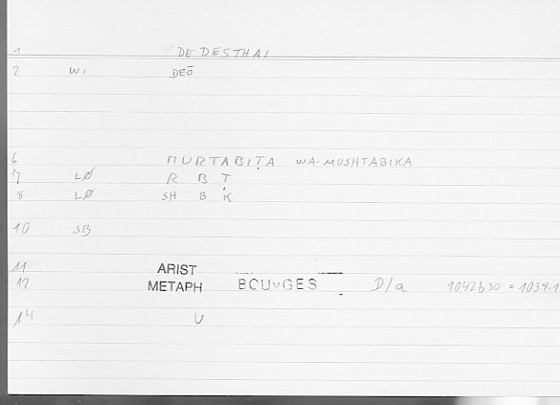 1 DEDESTHAI
2 WI DEŌ
6 MURTABIṬA WA-MUSHTABIKA
7 LØ R B Ṭ
8 LØ SH B K
10 SB
11 ARIST
12 METAPH BOUYGES D/a 1042b30 = 1039.1
14 U